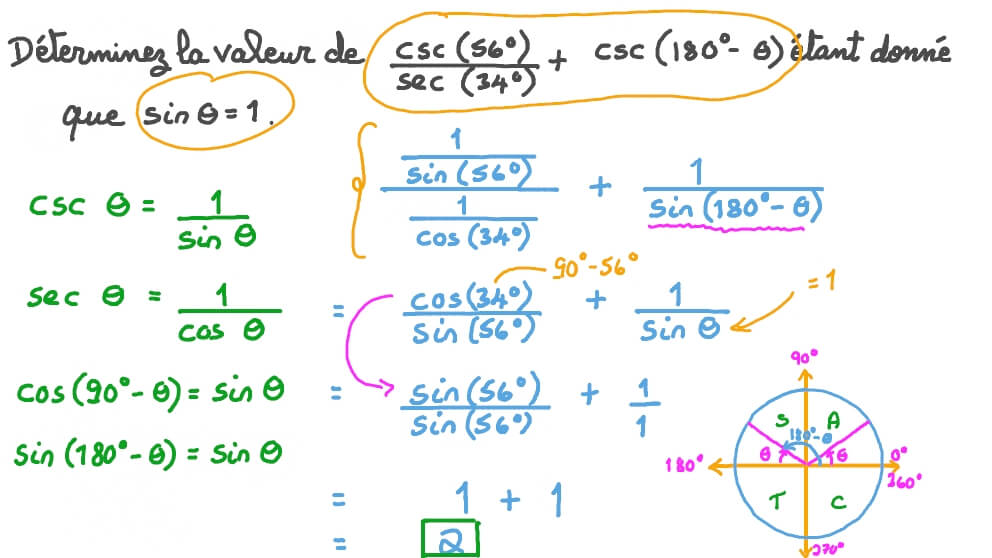 Déterminez la valeur de csc (56°) / sec (34°) + csc (180° - θ) étant donné
que sin θ = 1.
csc θ = 1 / sin θ
sec θ = 1 / cos θ
cos (90° - θ) = sin θ
sin (180° - θ) = sin θ
(1 / sin (56°)) / (1 / cos (34°)) + 1 / sin (180° - θ)
90° - 56°
= cos (34°) / sin (56°) + 1 / sin θ
= 1
= sin (56°) / sin (56°) + 1 / 1
= 1 + 1
= 2
90°
S A
180° - θ
180° θ θ 0°
360°
T C
270°